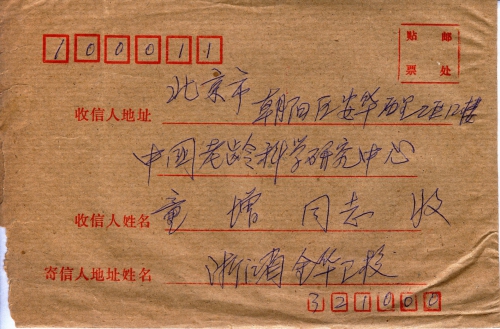 100011
贴 邮
票 处
北京市
收信人地址 朝阳区安华西里二区12楼
中国老龄科学研究中心
收信人姓名 童增 同志 收
寄信人地址姓名 浙江省金华卫校
321000